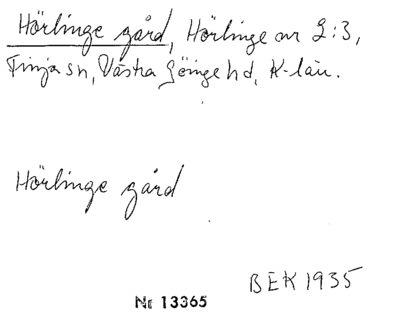 Hörlinge gård, Hörlinge nr 2:3,
Finja sn, Västra Göinge hd, K-län.
Hörlinge gård
BEK 1935
Nr 13365